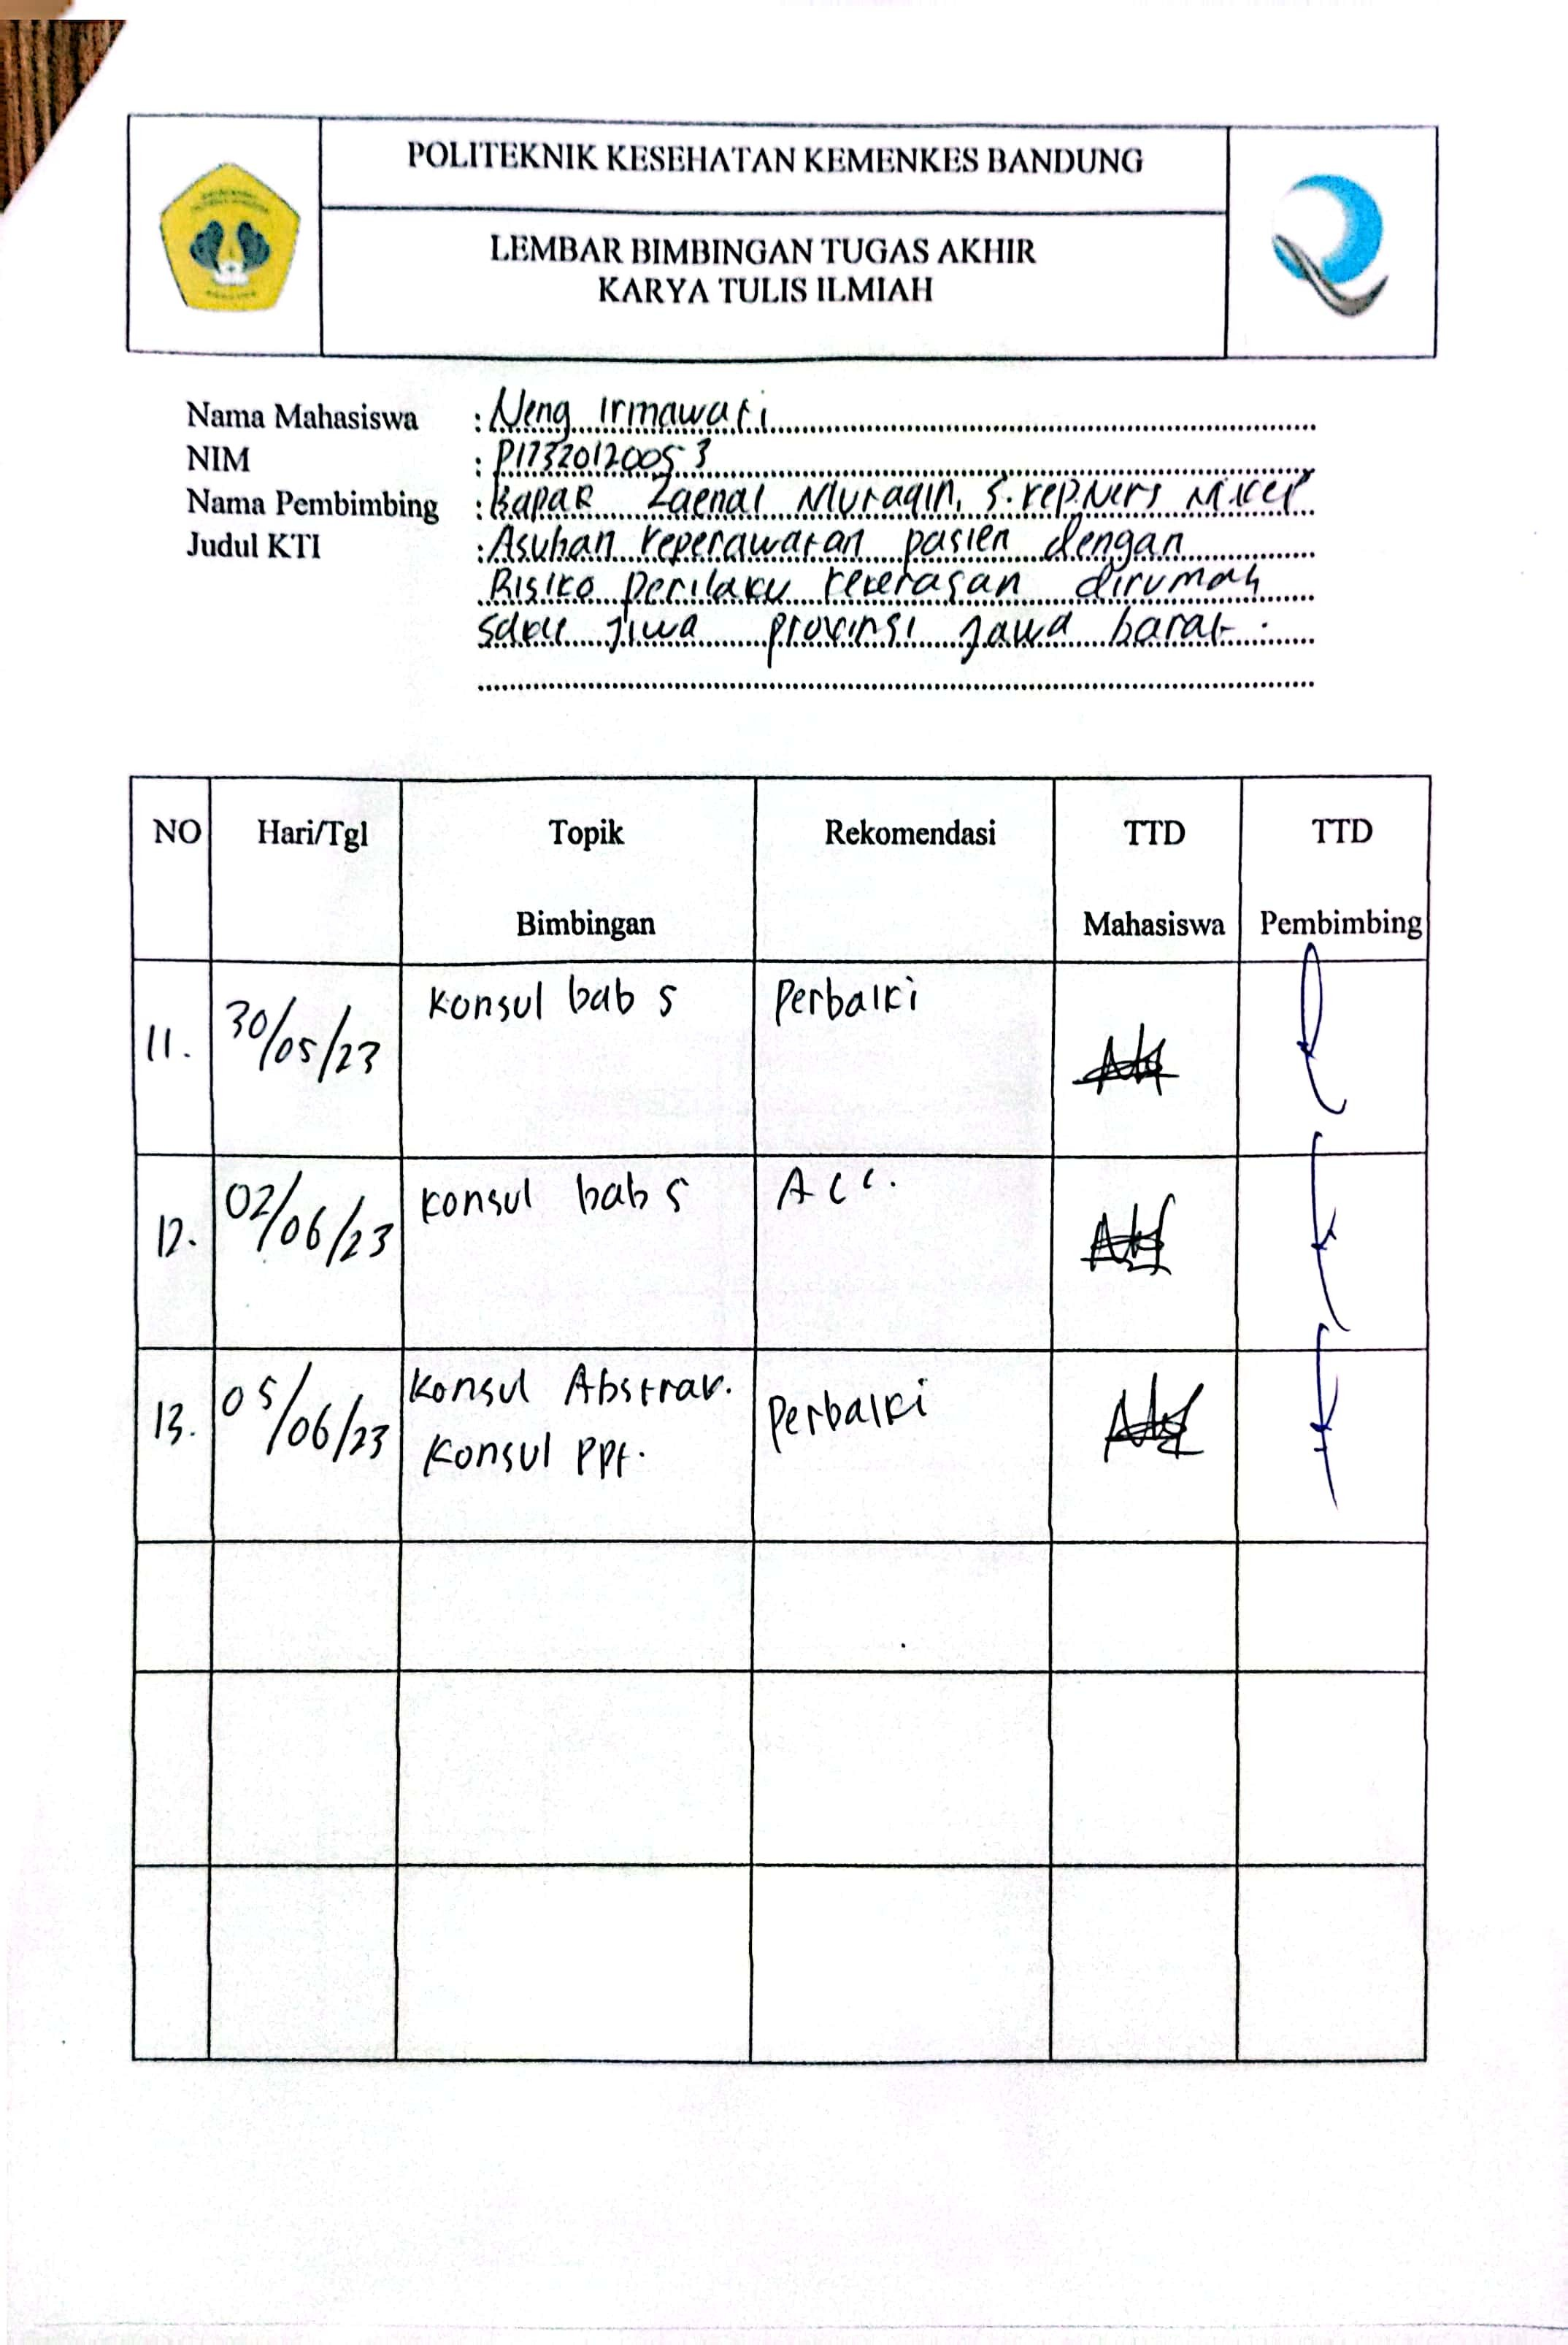 POLITEKNIK KESEHATAN KEMENKES BANDUNG
LEMBAR BIMBINGAN TUGAS AKHIR
KARYA TULIS ILMIAH
Nama Mahasiswa : Neng Irmawati
NIM : P17320120053
Nama Pembimbing : Bapak Zaenal Muraqin, S.Kep,Ners M.Kep
Judul KTI : Asuhan keperawatan pasien dengan
Risiko perilaku kekerasan dirumah
jiwa provinsi Jawa barat.
NO Hari/Tgl Topik Rekomendasi TTD TTD
Bimbingan Mahasiswa Pembimbing
11. 30/05/23 Konsul bab 5 Perbaiki
12. 02/06/23 Konsul bab 5 Acc.
13. 05/06/23 Konsul Abstrak. Perbaiki
Konsul PPt.